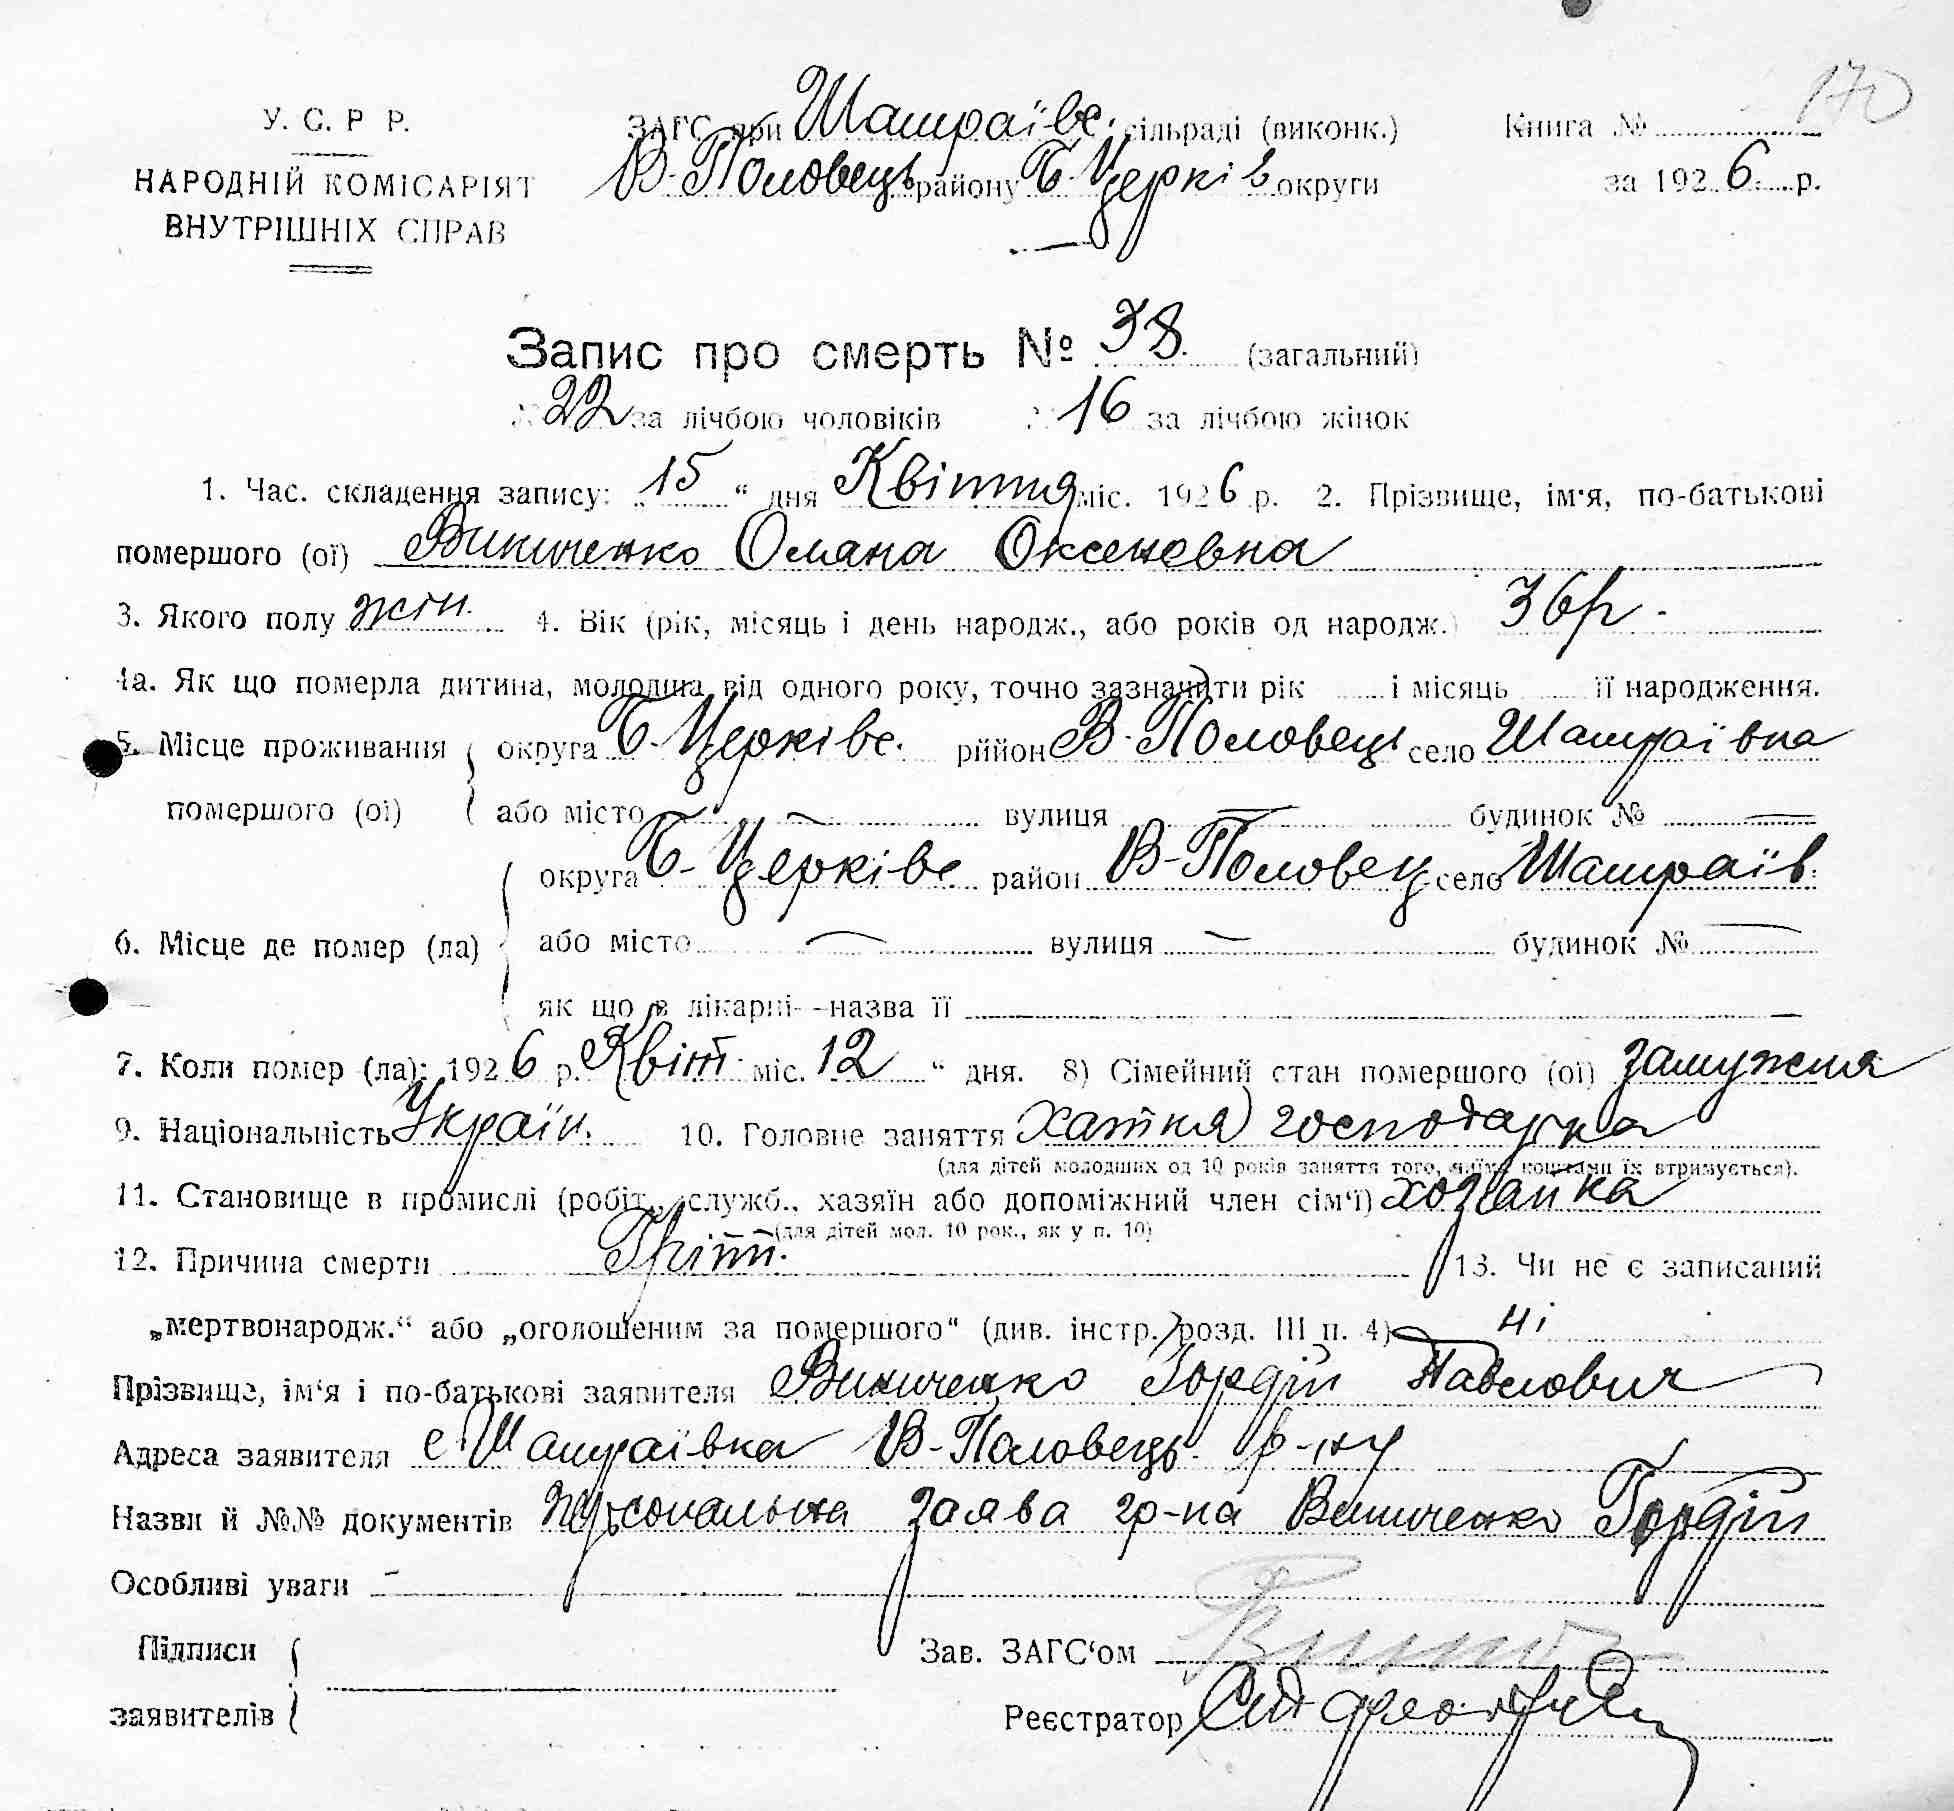 170
У. С. Р Р.
НАРОДНІЙ КОМІСАРІЯТ
ВНУТРІШНІХ СПРАВ
ЗАГС при Шамраївс. сільраді (виконк.)
В-Половець району Б-Церків округи
Книга №
за 1926 р.
Запис про смерть № 38. (загальний)
22 за лічбою чоловіків 16 за лічбою жінок
1. Час. складення запису: „15“ дня Квітня міс. 1926 р. 2. Прізвище, ім'я, по-батькові
помершого (ої) Винниченко Оксеновна
3. Якого полу жін. 4. Вік (рік, місяць і день народж., або років од народж.) 36 р.
4а. Як що померла дитина, молодша від одного року, точно зазначити рік і місяць її народження.
5. Місце проживання округа Б-Церківс. рййон В-Половець село Шамраївка
помершого (ої) або місто — вулиця — будинок № —
округа Б-Церківс район В-Половец село Шамраїв.
6. Місце де помер (ла) або місто — вулиця — будинок № —
як що в лікарні—назва її —
7. Коли помер (ла): 1926 р. Квіт міс. 12 “ дня. 8) Сімейний стан помершого (ої) замужня
9. Національність Україн. 10. Головне заняття хатня господарка
(для дітей молодших од 10 років заняття того, чиїми коштами їх втримується).
11. Становище в промислі (робіт., служб., хазяїн або допоміжний член сім'ї) хозяйка
(для дітей мол. 10 рок., як у п. 10)
12. Причина смерти 13. Чи не є записаний
„мертвонародж.“ або „оголошеним за помершого“ (див. інстр. розд. III п. 4) ні
Прізвище, ім'я і по-батькові заявителя Винниченко Гордій Павлович
Адреса заявителя с. Шамраївка В-Половець. р-ну
Назви й №№ документів персональна заява гр-на Винниченко Гордій
Особливі уваги —
Підписи
заявителів
Зав. ЗАГС'ом
Реєстратор